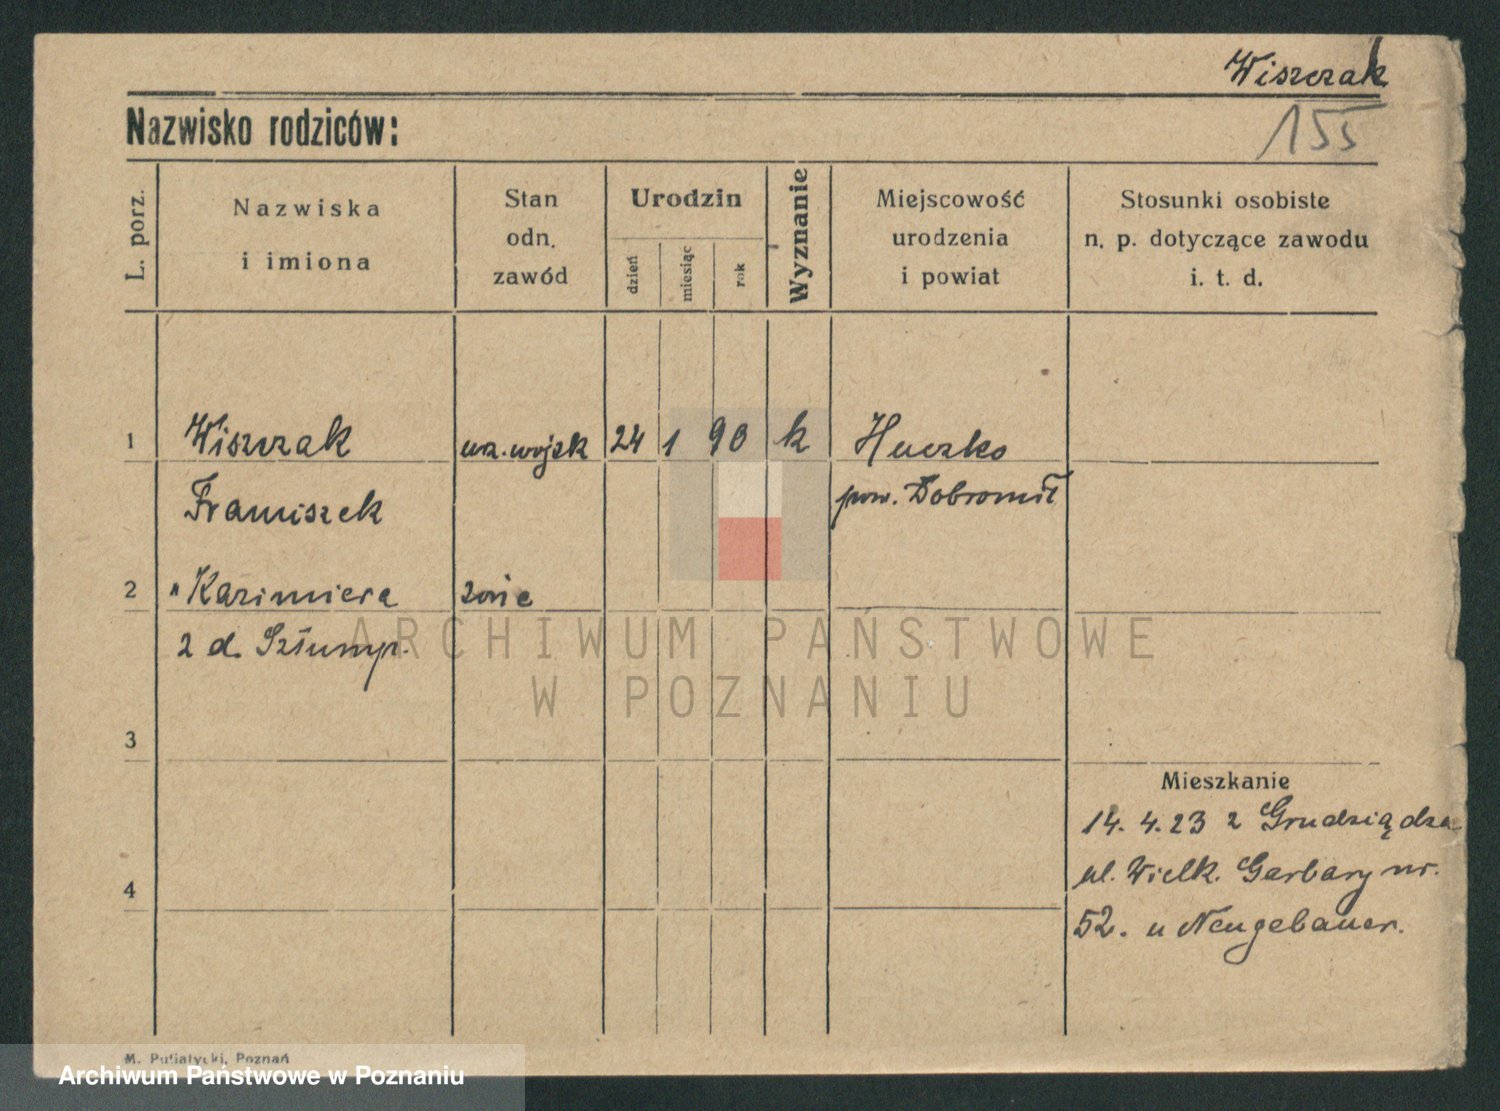 Wiszczak
155
Nazwisko rodziców:
L. porz.
Nazwiska
i imiona
Stan
odn.
zawód
Urodzin
dzień
miesiąc
rok
Wyznanie
Miejscowość
urodzenia
i powiat
Stosunki osobiste
n. p. dotyczące zawodu
i. t. d.
1 Wiszczak urz. wojsk 24 1 90 k Huczko
Franciszek pow. Dobromil
2 " Kazimiera żona
z d. Sztump.
3
Mieszkanie
14. 4. 23 z Grudziądza
4 ul. Wielk. Garbary nr.
52. u Neugebauer.
M. Putiatycki, Poznań
ARCHIWUM PAŃSTWOWE
W POZNANIU
Archiwum Państwowe w Poznaniu